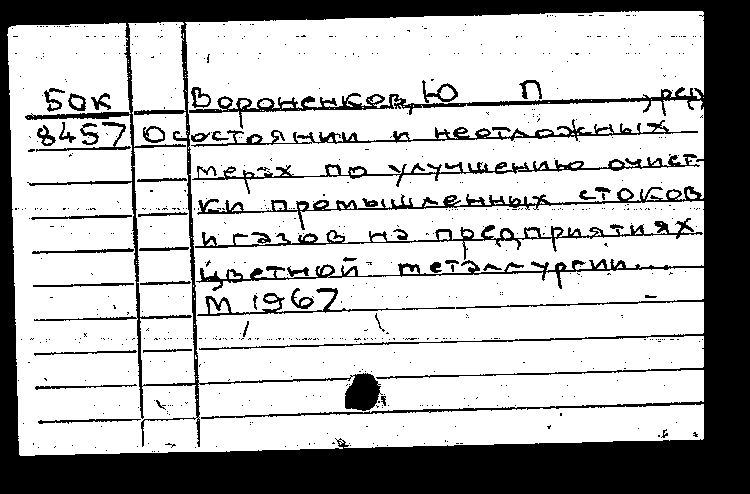 БОК Вороненков, Ю П , ред
8457 О состоянии и неотложных
мерах по улучшению очист-
ки промышленных стоков
и газов на предприятиях
цветной металлургии...
М 1967